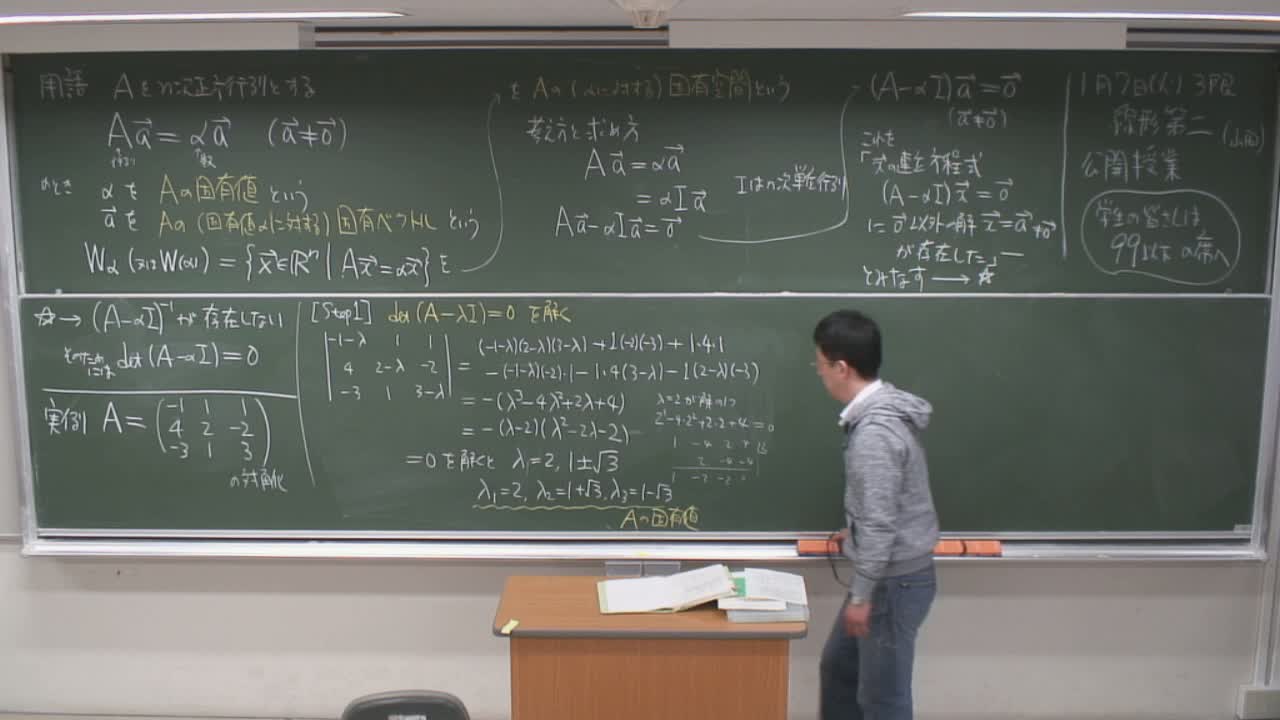 用語 Aをn次正方行列とする
Aa⃗ = αa⃗ (a⃗≠o⃗)
行列 数
のとき αを Aの固有値 という
a⃗を Aの(固有値αに対する)固有ベクトル という
Wα (又はW(α)) = {x⃗∈ℝⁿ | Ax⃗=αx⃗} を
を Aの(αに対する)固有空間という
考え方と求め方
Aa⃗ = αa⃗
= αIa⃗
Iはn次単位行列
Aa⃗-αIa⃗=o⃗
(A-αI)a⃗=o⃗
(a⃗≠o⃗)
これを
「x⃗の連立方程式
(A-αI)x⃗=o⃗
にo⃗以外の解 x⃗=a⃗≠o⃗
が存在した」
とみなす → ☆
1月7日(火) 3限
線形第二 (山田)
公開授業
学生の皆さんは
99以下の席へ
☆→ (A-αI)⁻¹が存在しない
そのためには det(A-αI)=0
実例 A= (-1 1 1
4 2 -2
-3 1 3)
の対角化
[Step1] det(A-λI)=0 を解く
|-1-λ 1 1|
|4 2-λ -2|
|-3 1 3-λ|
= (-1-λ)(2-λ)(3-λ)+1(-2)(-3)+1・4・1
-(-1-λ)(-2)・1-1・4(3-λ)-1(2-λ)(-3)
= -(λ³-4λ²+2λ+4)
= -(λ-2)(λ²-2λ-2)
=0を解くと λ=2, 1±√3
λ₁=2, λ₂=1+√3, λ₃=1-√3
Aの固有値
λ=2が解の1つ
2³-4・2²+2・2+4=0
1 -4 2 4
2 -4 -4
1 -2 -2 0